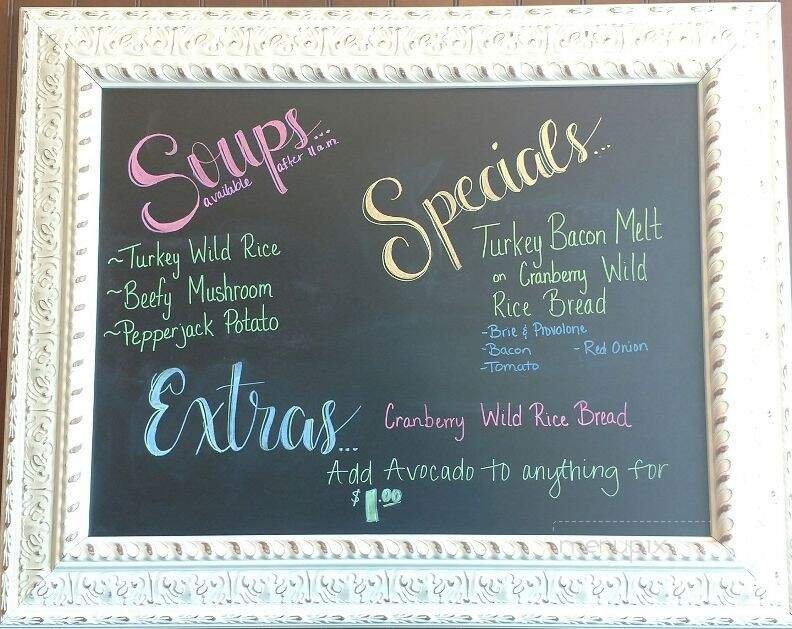 Soups...
available after 11 a.m.
~Turkey Wild Rice
~Beefy Mushroom
~Pepperjack Potato
Specials...
Turkey Bacon Melt
on Cranberry Wild
Rice Bread
-Brie & Provolone
-Bacon -Red Onion
-Tomato
Extras...
Cranberry Wild Rice Bread
Add Avocado to anything for
$1.00
menupix